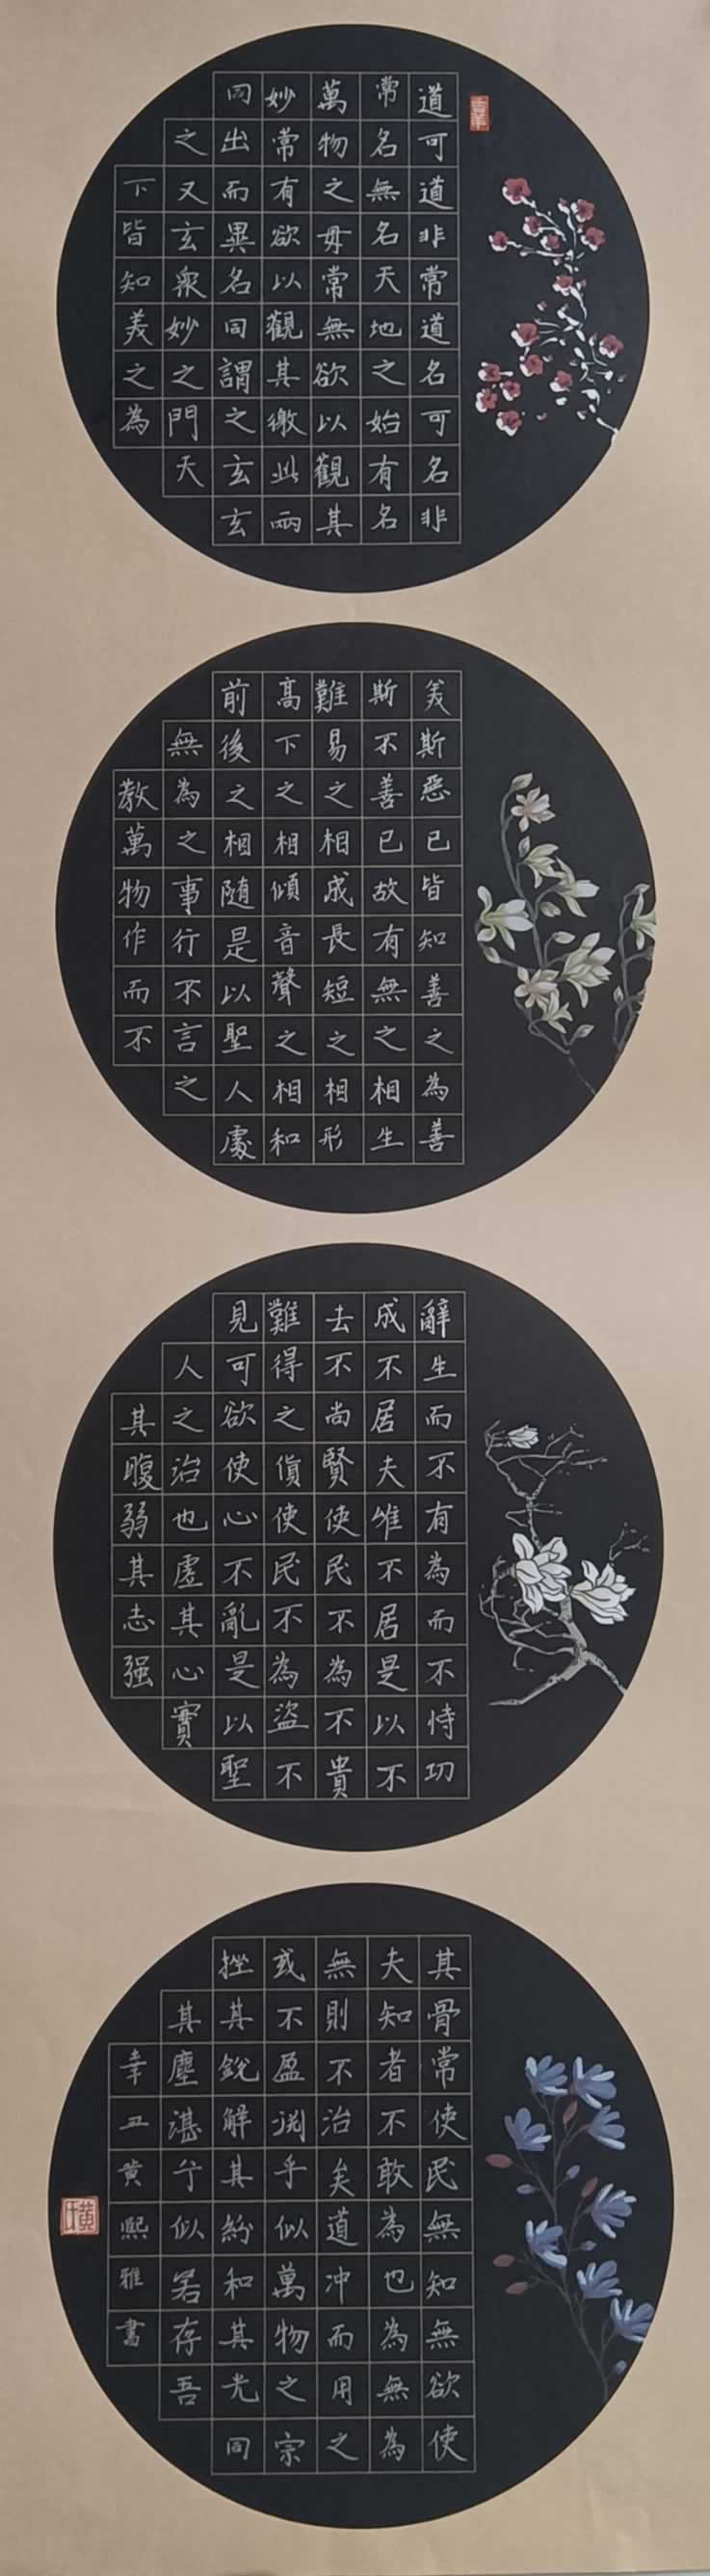 道可道非常道名可名非
常名無名天地之始有名
萬物之毋常無欲以觀其
妙常有欲以觀其徼此兩
同出而異名同謂之玄玄
之又玄衆妙之門天
下皆知美之為
美斯惡已皆知善之為善
斯不善已故有無之相生
難易之相成長短之相形
高下之相傾音聲之相和
前後之相随是以聖人處
無為之事行不言之
教萬物作而不
辭生而不有為而不恃功
成不居夫唯不居是以不
去不尚賢使民不為不貴
難得之貨使民不為盜不
見可欲使心不亂是以聖
人之治也虛其心實
其腹弱其志强
其骨常使民無知無欲使
夫知者不敢為也為無為
無則不治矣道冲而用之
或不盈渊乎似萬物之宗
挫其銳解其紛和其光同
其塵湛兮似若存吾
辛丑黄熙雅書